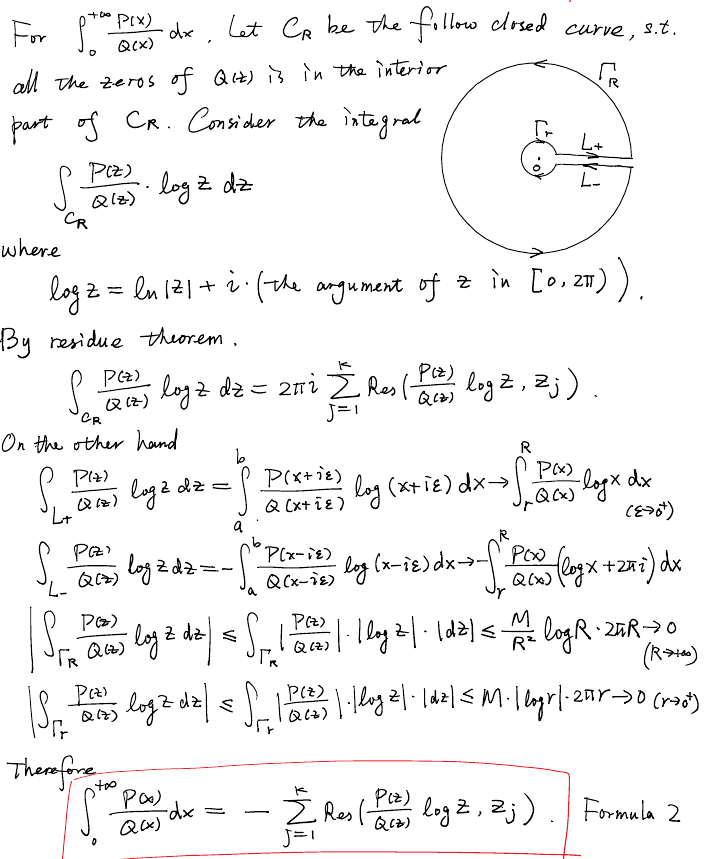 For ∫₀^{+∞} P(x)/Q(x) dx. Let C_R be the follow closed curve, s.t.
all the zeros of Q(z) is in the interior
part of C_R. Consider the integral
∫_{C_R} P(z)/Q(z) · log z dz
Γ_R
Γ_r
L+
L-
0
where
log z = ln|z| + i·(the argument of z in [0, 2π)).
By residue theorem.
∫_{C_R} P(z)/Q(z) log z dz = 2πi ∑_{j=1}^{k} Res(P(z)/Q(z) log z, z_j).
On the other hand
∫_{L+} P(z)/Q(z) log z dz = ∫_a^b P(x+iε)/Q(x+iε) log(x+iε) dx → ∫_r^R P(x)/Q(x) log x dx (ε→0⁺)
∫_{L-} P(z)/Q(z) log z dz = -∫_a^b P(x-iε)/Q(x-iε) log(x-iε) dx → -∫_r^R P(x)/Q(x) (log x + 2πi) dx
|∫_{Γ_R} P(z)/Q(z) log z dz| ≤ ∫_{Γ_R} |P(z)/Q(z)|·|log z|·|dz| ≤ M/R² log R · 2πR → 0 (R→+∞)
|∫_{Γ_r} P(z)/Q(z) log z dz| ≤ ∫_{Γ_r} |P(z)/Q(z)|·|log z|·|dz| ≤ M·|log r|·2πr → 0 (r→0⁺)
Therefore
∫₀^{+∞} P(x)/Q(x) dx = - ∑_{j=1}^{k} Res(P(z)/Q(z) log z, z_j). Formula 2